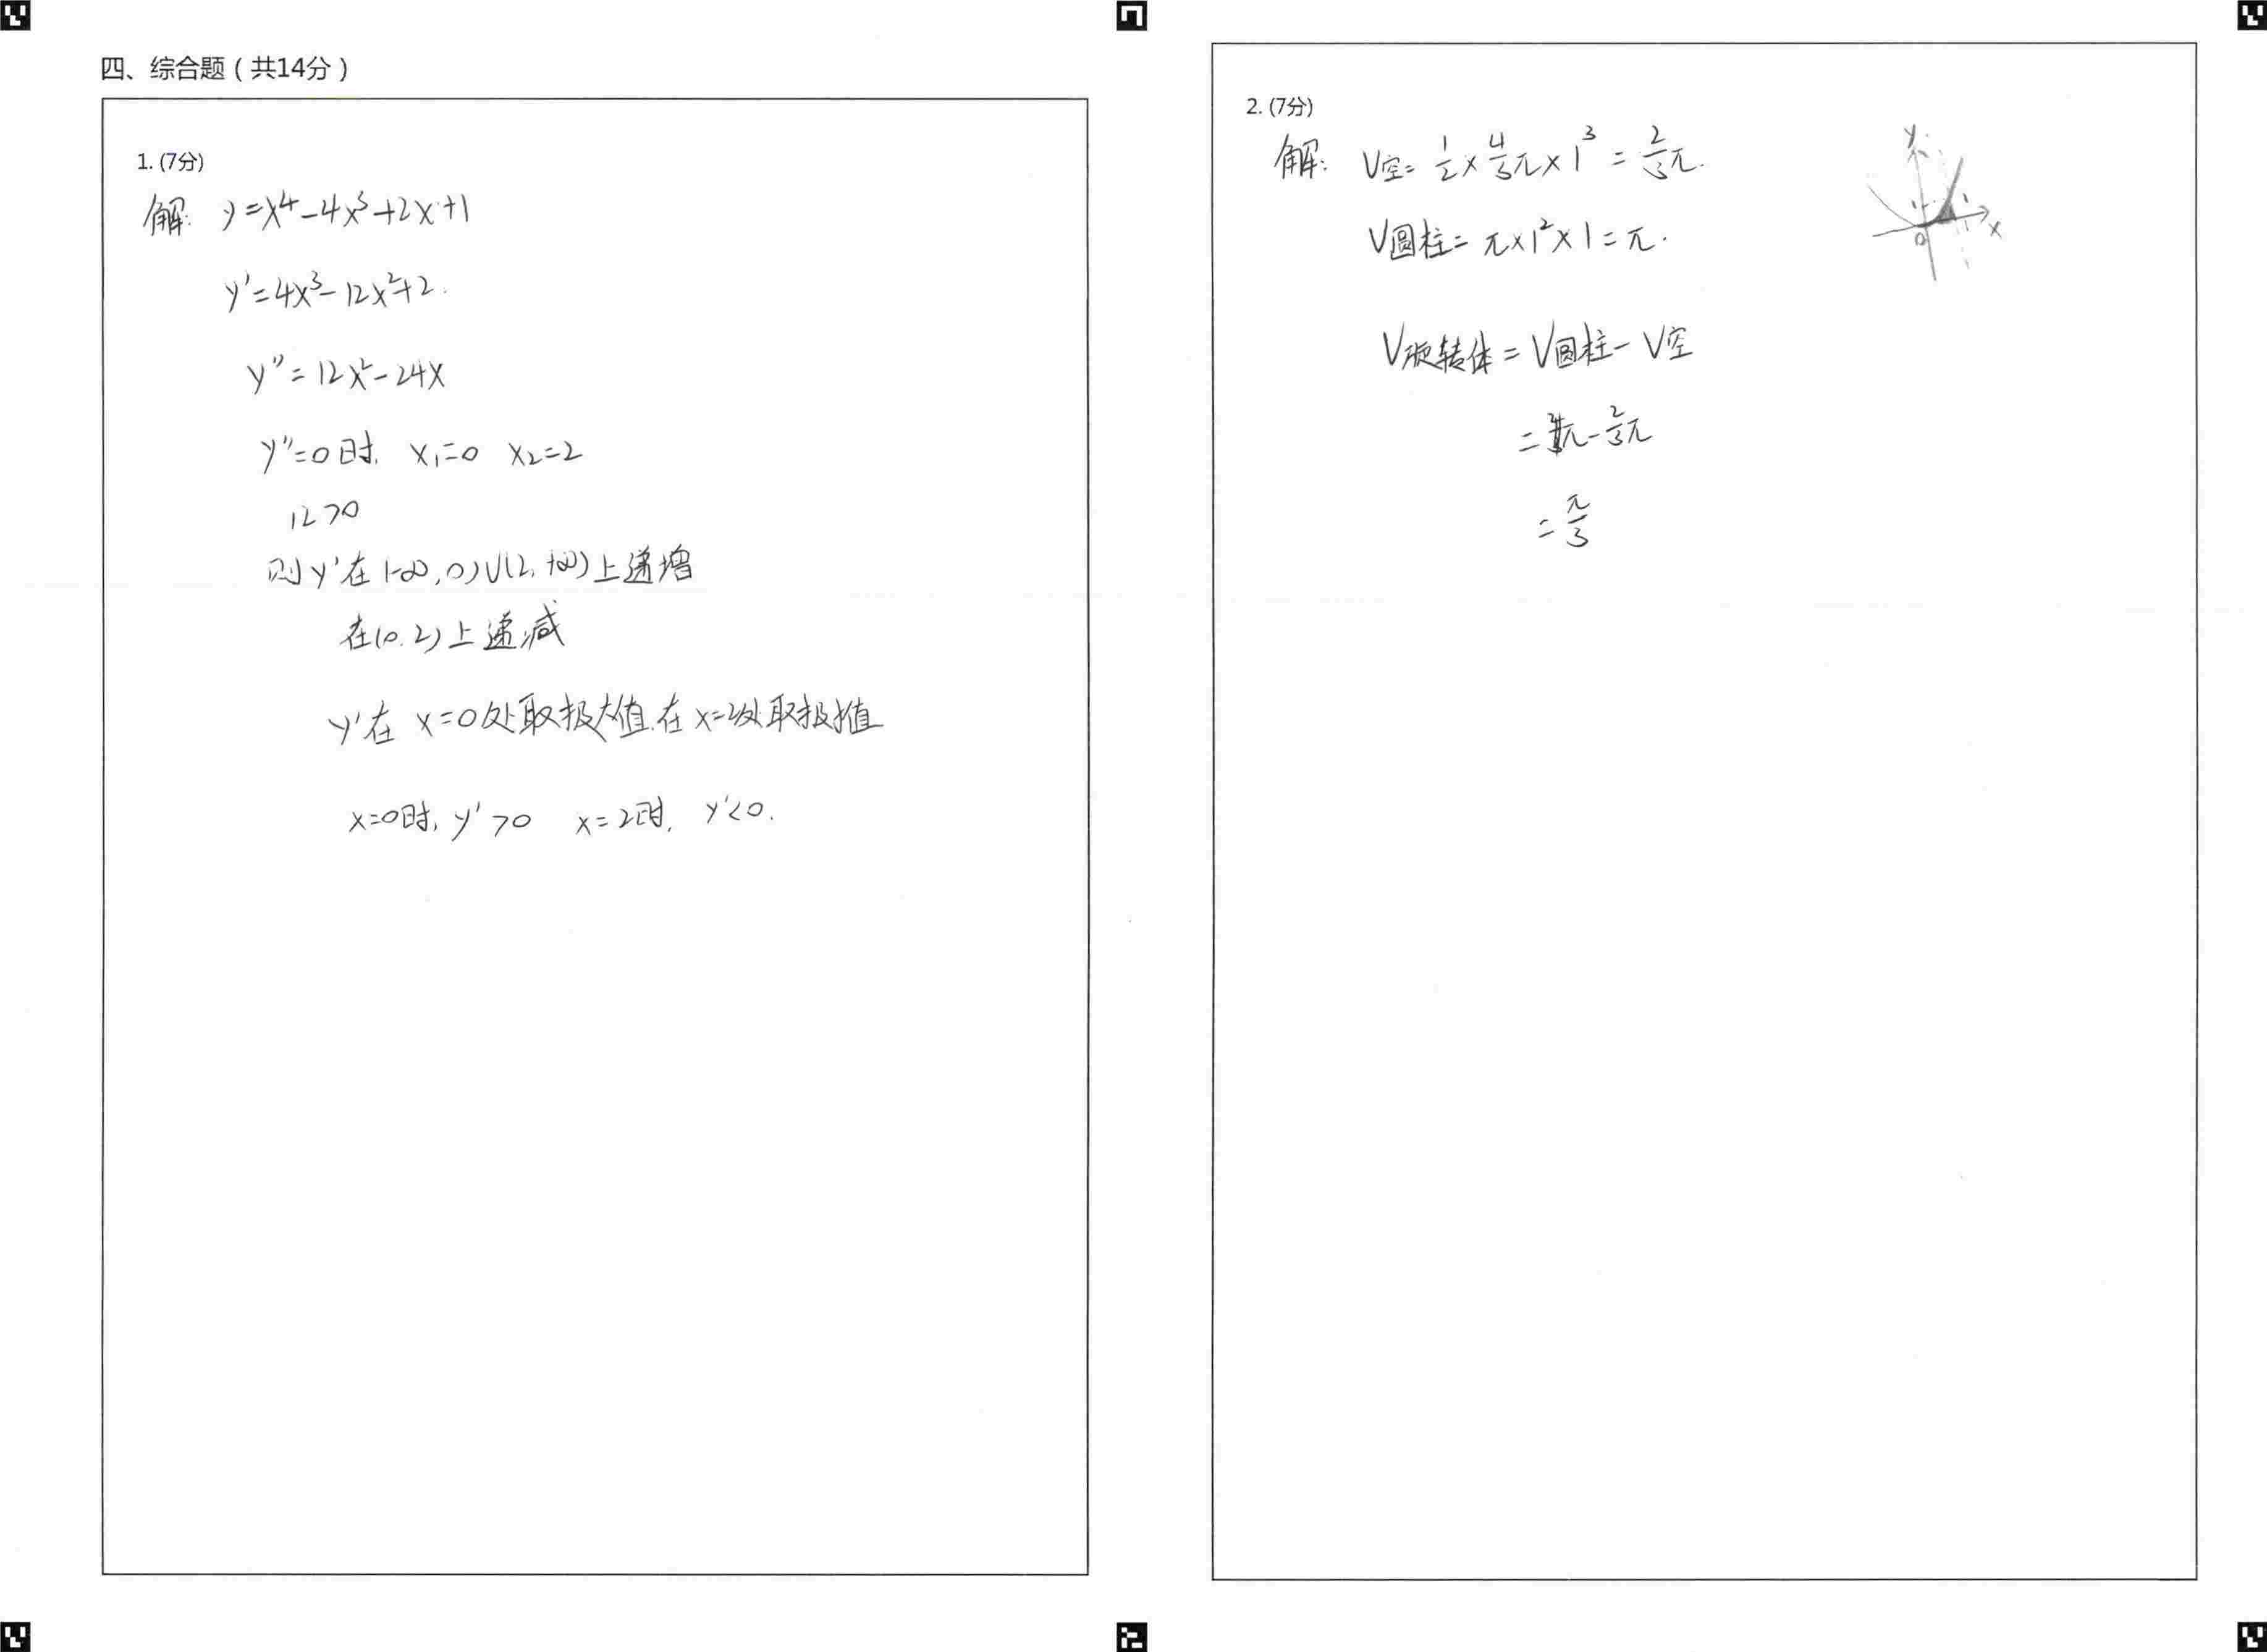 四、综合题（共14分）
1. (7分)
解: y=x⁴-4x³+2x+1
y'=4x³-12x²+2.
y''=12x²-24x
y''=0时, x₁=0 x₂=2
12>0
则y'在(-∞,0)∪(2,+∞)上递增
在(0,2)上递减
y'在 x=0处取极大值,在x=2处取极小值
x=0时, y'>0 x=2时, y'<0.
2. (7分)
解: V空= 1/2 × 4/3 π × 1³ = 2/3 π.
V圆柱= π×1²×1=π.
V旋转体=V圆柱-V空
= π- 2/3 π
= π/3
y
1
1
0
x